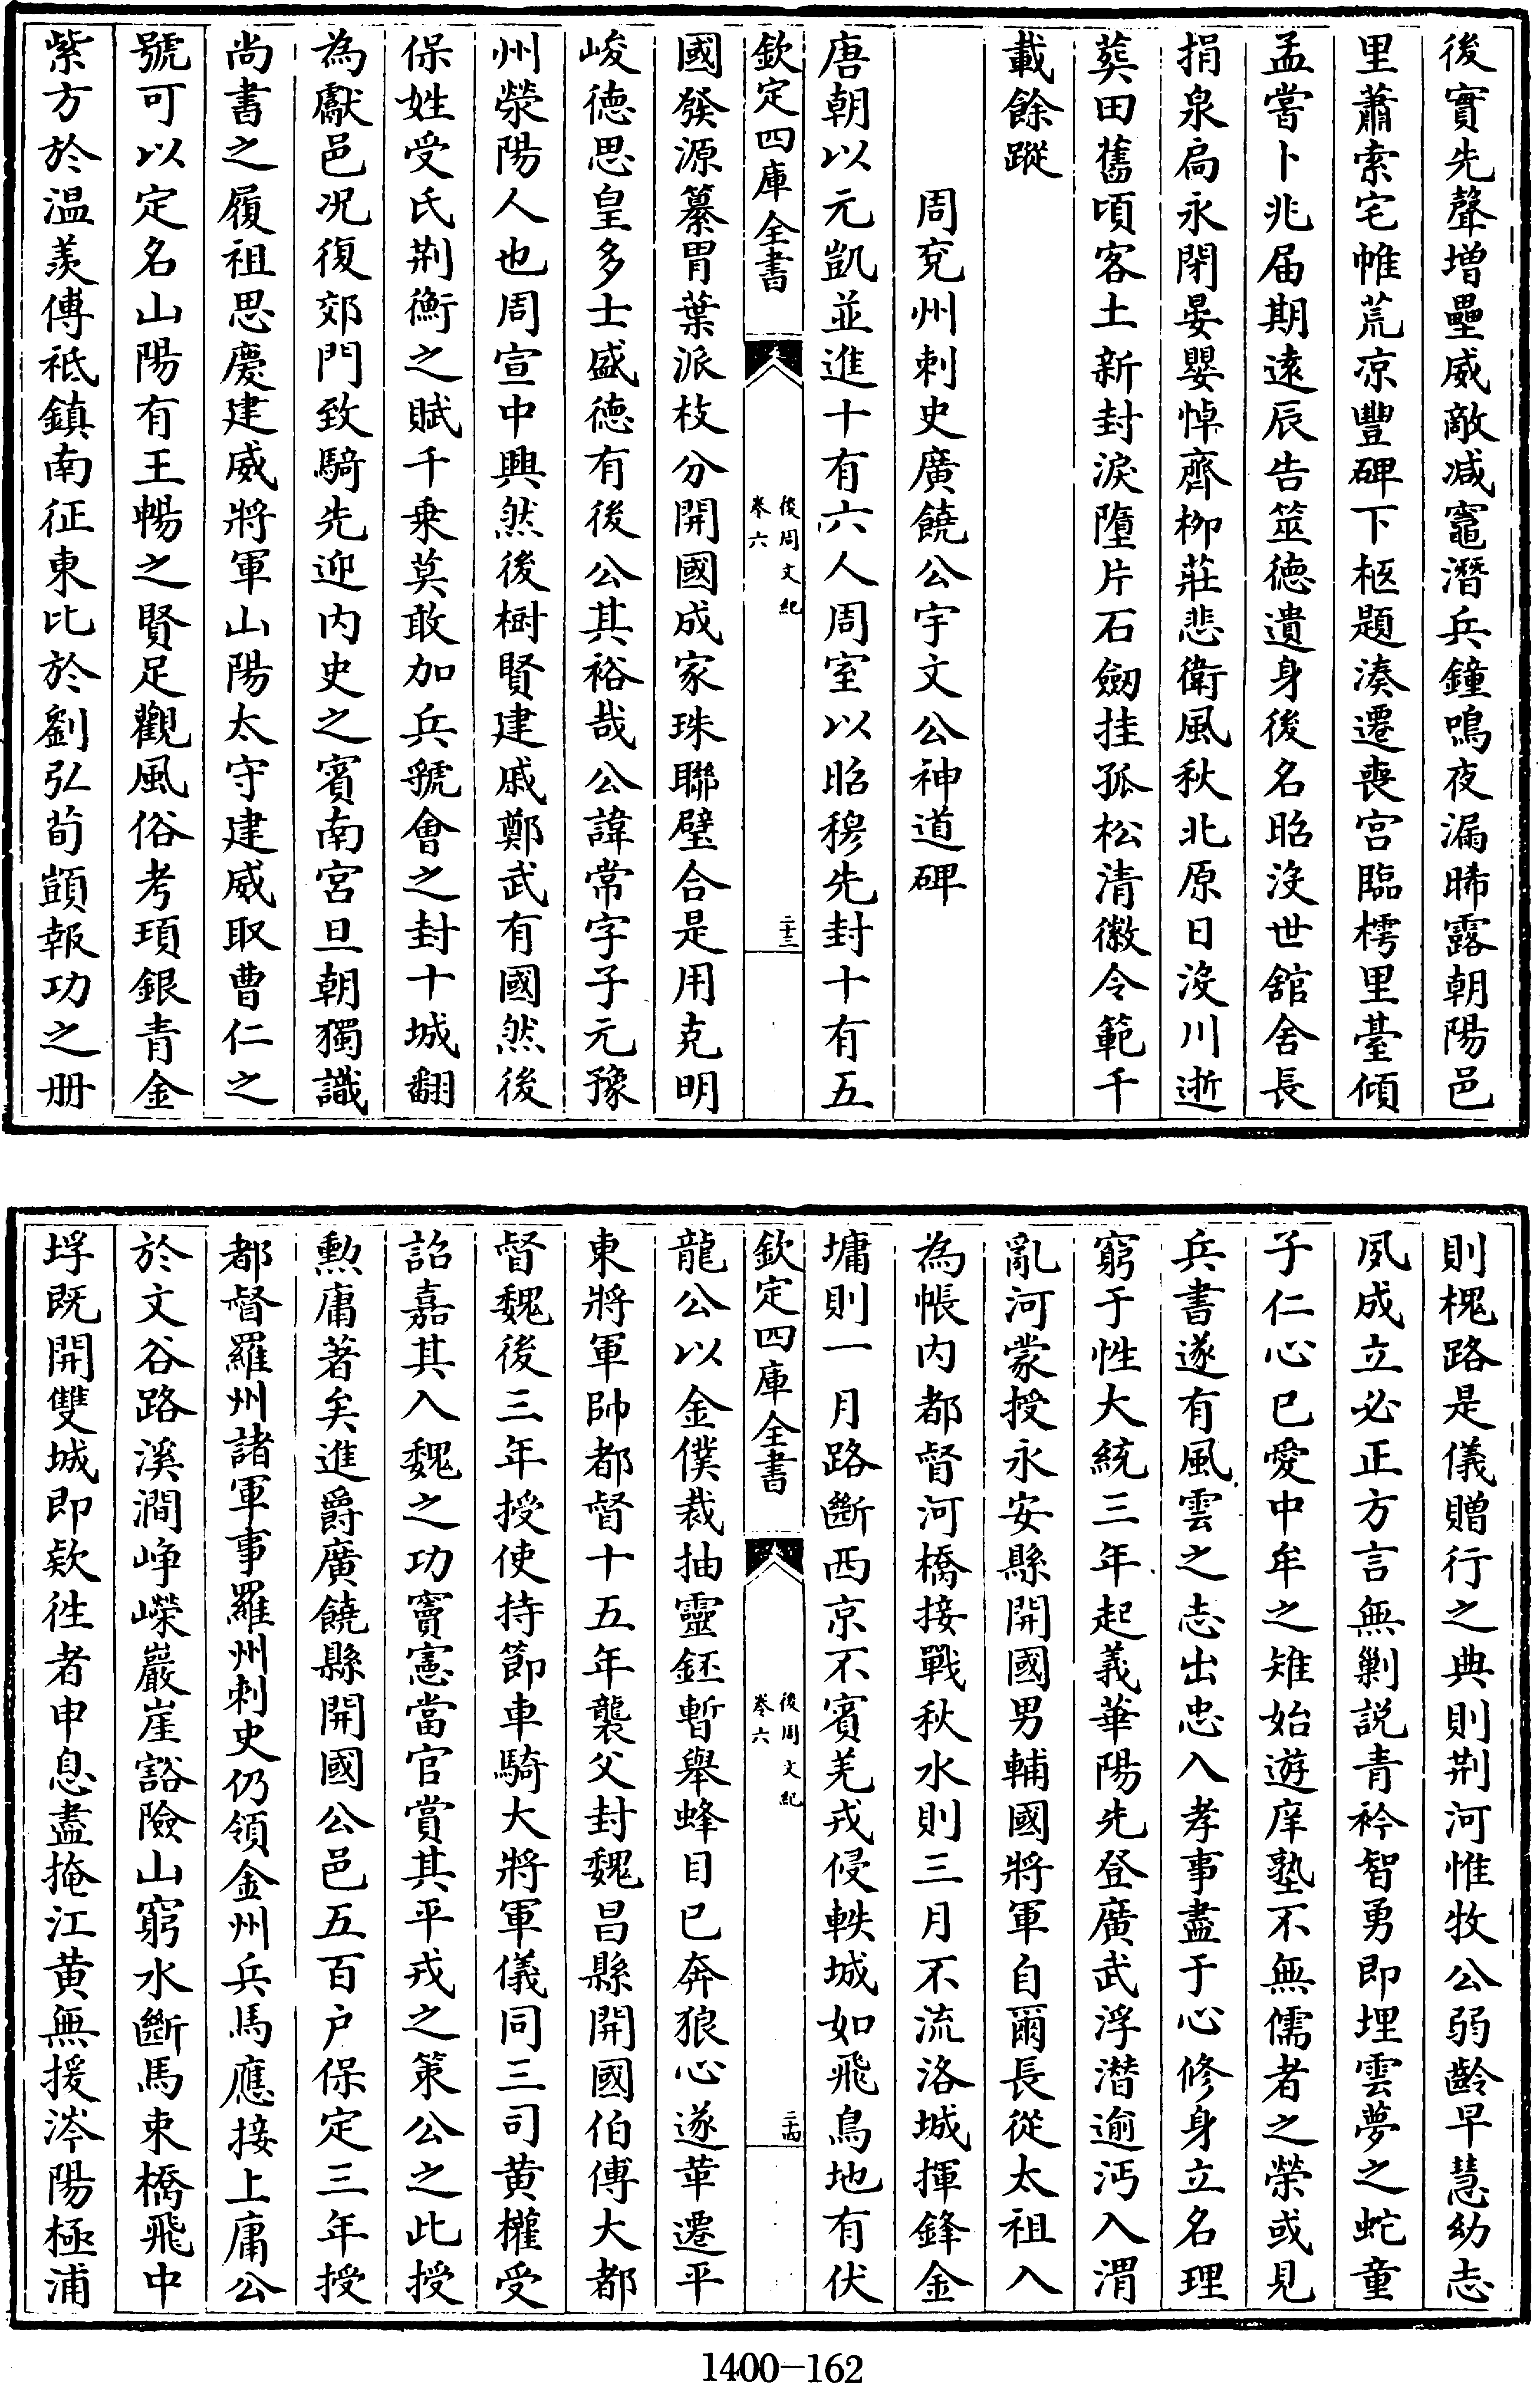 後實先聲増壘威敵减竈潛兵鐘鳴夜漏晞露朝陽邑
里蕭索宅帷荒凉豐碑下柩題湊遷喪宫臨樗里臺傾
孟嘗卜兆届期逺辰告筮徳遺身後名昭沒世舘舍長
捐泉扃永閉晏嬰悼齊柳莊悲衛風秋北原日沒川逝
葬田舊頃客土新封淚墮片石劒挂孤松清徽令範千
載餘蹤
周兖州刺史廣饒公宇文公神道碑
唐朝以元凱並進十有六人周室以昭穆先封十有五
欽定四庫全書
後周文紀
卷六
二十三
國發源纂胃葉派枝分開國成家珠聯璧合是用克明
峻德思皇多士盛德有後公其裕哉公諱常字子元豫
州滎陽人也周宣中興然後樹賢建戚鄭武有國然後
保姓受氏荆衡之賦千乗莫敢加兵虢會之封十城翻
為獻邑况復郊門致騎先迎内史之賓南宮旦朝獨識
尚書之履祖思慶建威將軍山陽太守建威取曹仁之
號可以定名山陽有王暢之賢足觀風俗考頊銀青金
紫方於温羡傅祗鎮南征東比於劉弘荀顗報功之册
則槐路是儀贈行之典則荆河惟牧公弱齡早慧幼志
夙成立必正方言無剿説青衿智勇即埋雲夢之蛇童
子仁心已愛中牟之雉始遊庠塾不無儒者之榮或見
兵書遂有風雲之志出忠入孝事盡于心修身立名理
窮于性大統三年起義華陽先登廣武浮潜逾沔入渭
亂河蒙授永安縣開國男輔國將軍自爾長從太祖入
為帳内都督河橋接戰秋水則三月不流洛城揮鋒金
墉則一月路斷西京不賓羌戎侵軼城如飛鳥地有伏
欽定四庫全書
後周文紀
卷六
二十四
龍公以金僕裁抽靈鉟暫舉蜂目已奔狼心遂革遷平
東將軍帥都督十五年襲父封魏昌縣開國伯傅大都
督魏後三年授使持節車騎大將軍儀同三司黄權受
詔嘉其入魏之功竇憲當官賞其平戎之策公之此授
勲庸著矣進爵廣饒縣開國公邑五百户保定三年授
都督羅州諸軍事羅州刺史仍領金州兵馬應接上庸公
於文谷路溪澗峥嶸巖崖豁險山窮水斷馬束橋飛中
垺既開雙城即欵徃者申息盡掩江黄無援涔陽極浦
1400-162